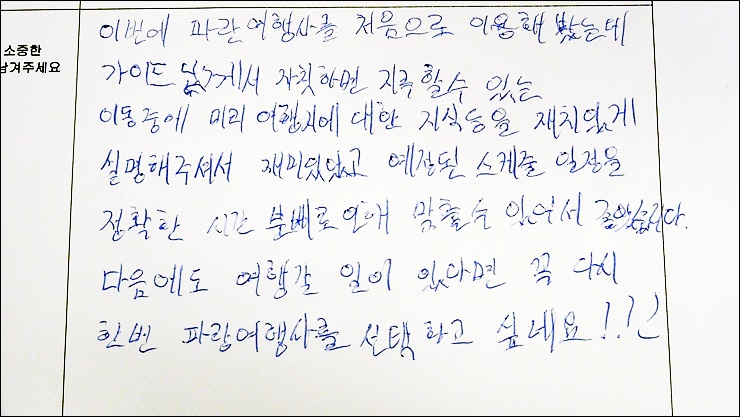 소중한
남겨주세요
이번에 파란여행사를 처음으로 이용해 봤는데
가이드 님께서 자칫하면 지루 할수 있는
이동중에 미리 여행지에 대한 지식등을 재치있게
설명해주셔서 재미있었고 예정된 스케줄 일정을
정확한 시간 분배로 인해 맞출수 있어서 좋았습니다.
다음에도 여행갈 일이 있다면 꼭 다시
한번 파랑여행사를 선택하고 싶네요!!